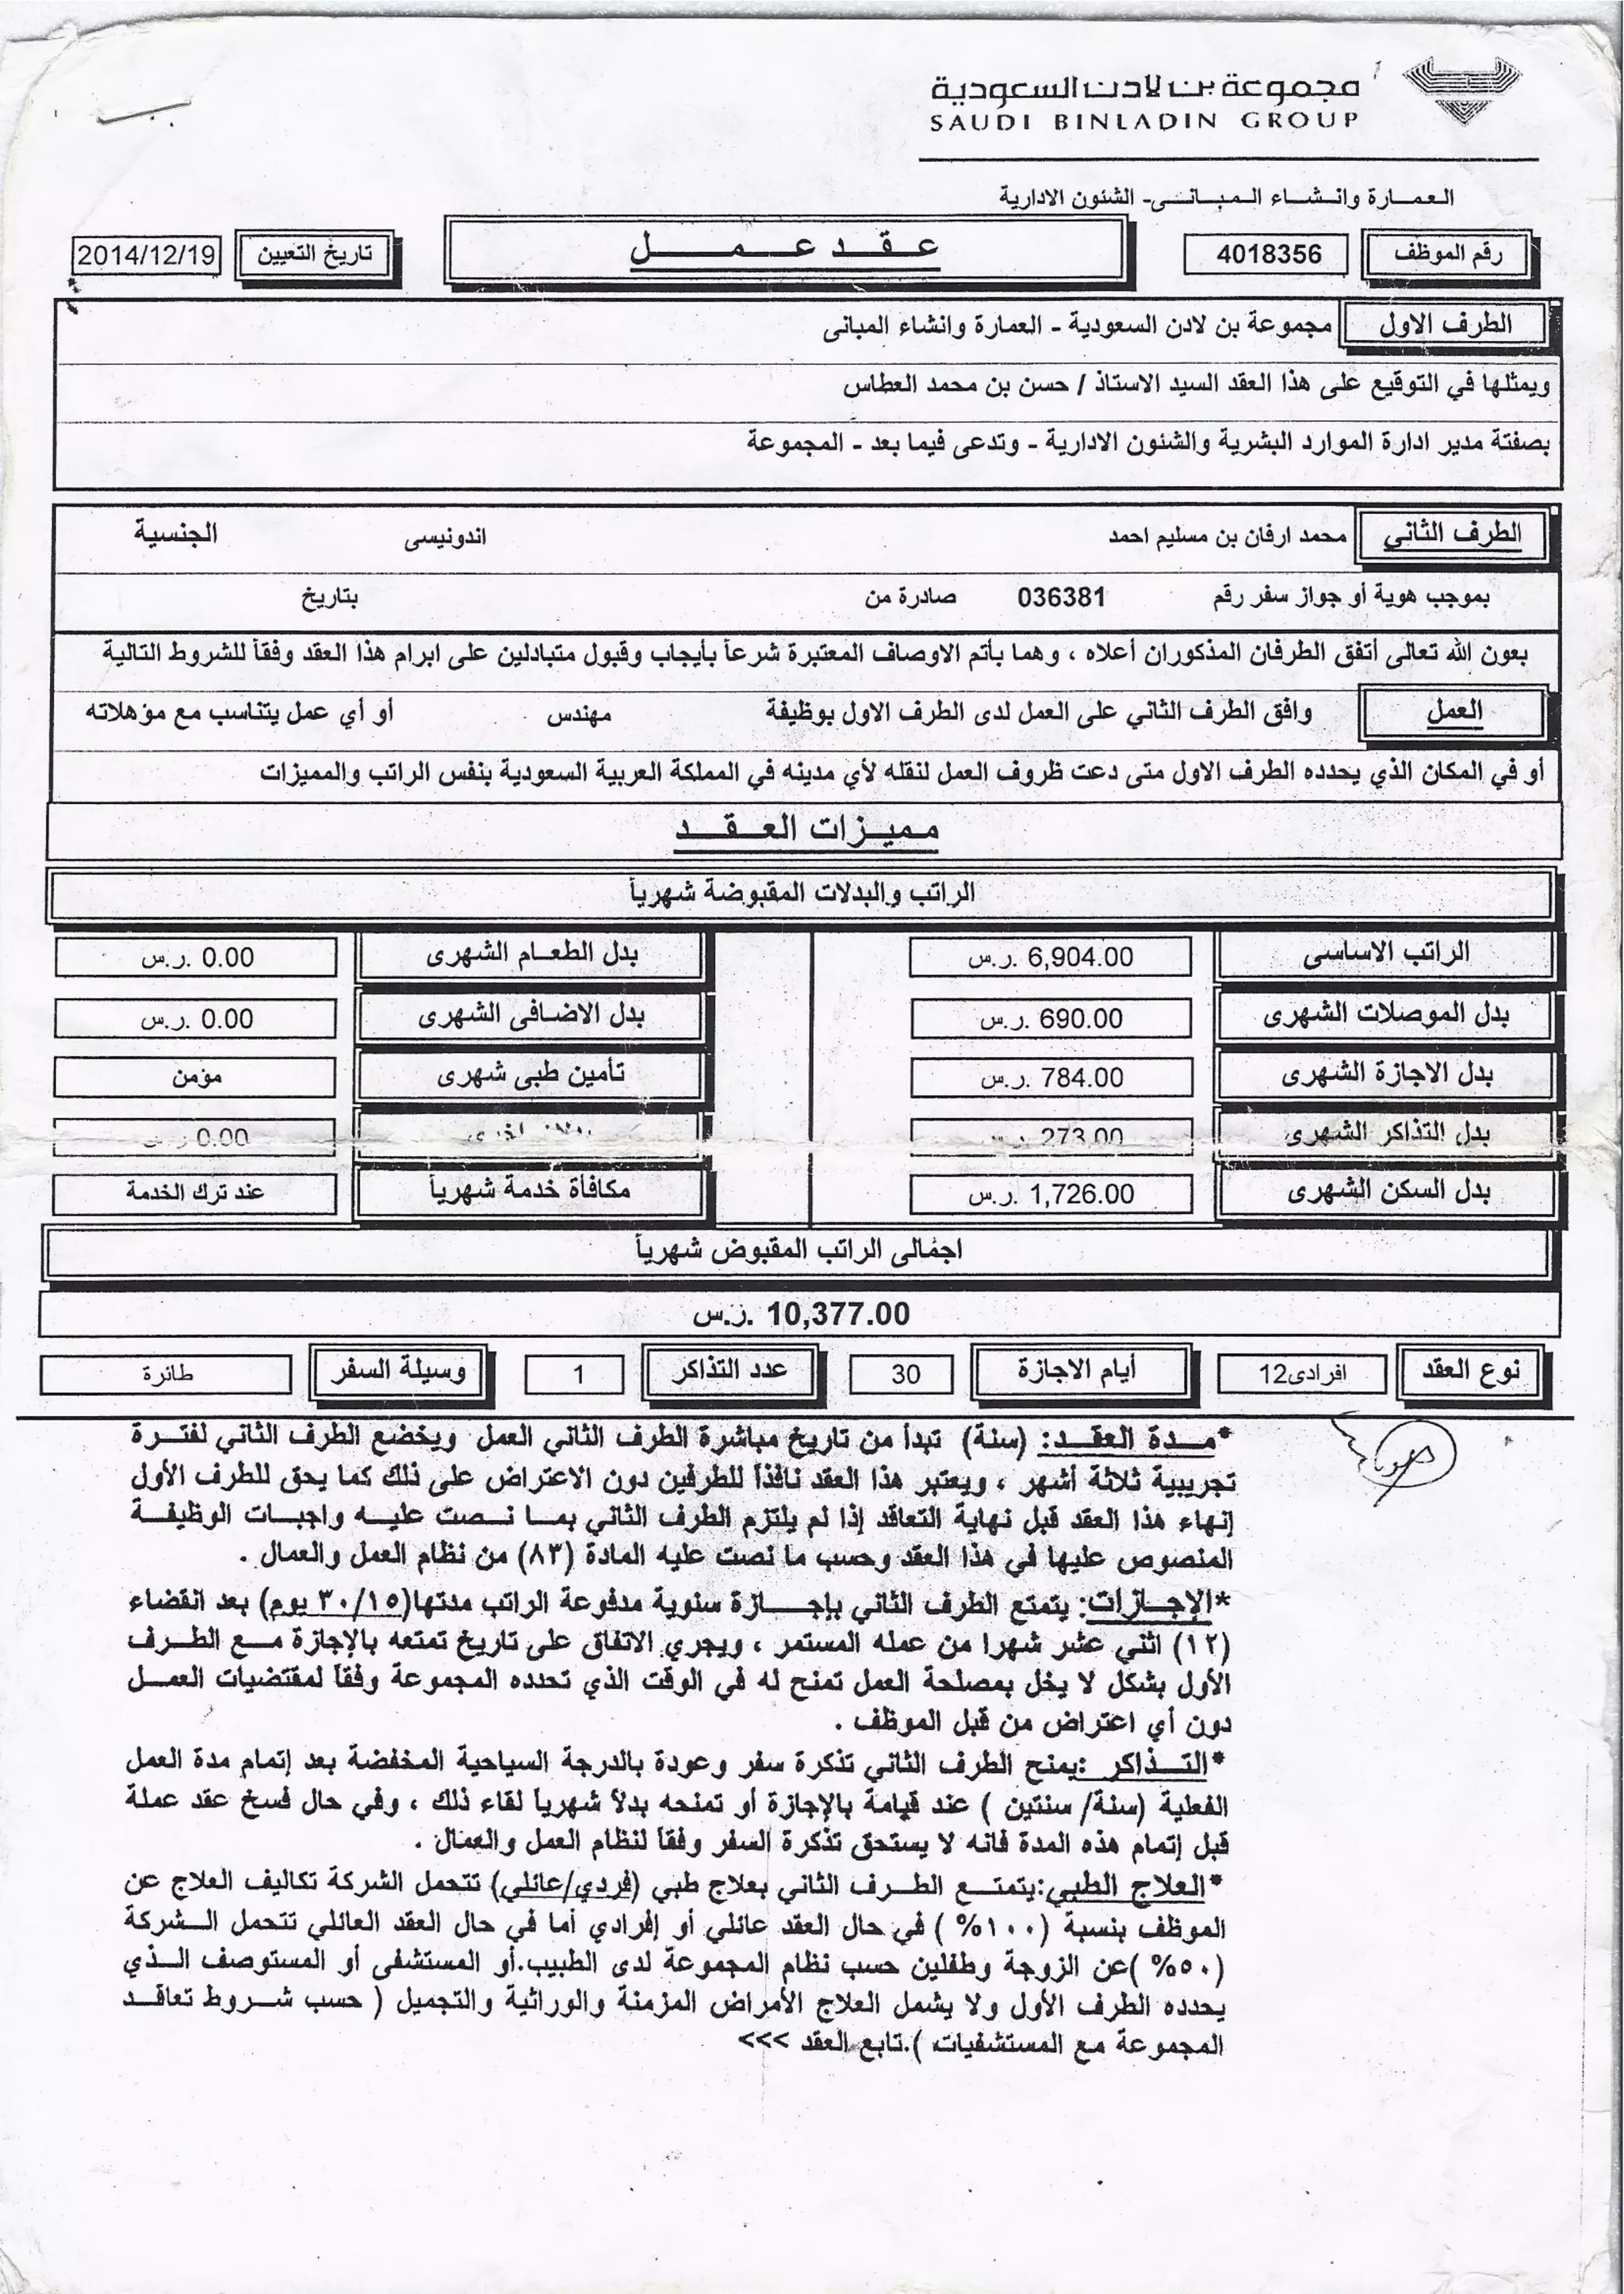 مجموعة بن لادن السعودية
SAUDI BINLADIN GROUP
العمارة وانشاء المباني- الشئون الادارية
رقم الموظف 4018356 عقد عمل تاريخ التعيين 2014/12/19
الطرف الاول مجموعة بن لادن السعودية - العمارة وانشاء المبانى
ويمثلها في التوقيع على هذا العقد السيد الاستاذ / حسن بن محمد العطاس
بصفتة مدير ادارة الموارد البشرية والشئون الادارية - وتدعى فيما بعد - المجموعة
الطرف الثاني محمد ارفان بن مسليم احمد اندونيسى الجنسية
بموجب هوية أو جواز سفر رقم 036381 صادرة من بتاريخ
بعون الله تعالى أتفق الطرفان المذكوران أعلاه ، وهما بأتم الاوصاف المعتبرة شرعاً بأيجاب وقبول متبادلين على ابرام هذا العقد وفقاً للشروط التالية
العمل وافق الطرف الثاني على العمل لدى الطرف الاول بوظيفة مهندس أو أي عمل يتناسب مع مؤهلاته
أو في المكان الذي يحدده الطرف الاول متى دعت ظروف العمل لنقله لأي مدينه في المملكة العربية السعودية بنفس الراتب والمميزات
مميزات العقد
الراتب والبدلات المقبوضة شهرياً
الراتب الاساسى 6,904.00 ر.س. بدل الطعام الشهرى 0.00 ر.س.
بدل الموصلات الشهرى 690.00 ر.س. بدل الاضافى الشهرى 0.00 ر.س.
بدل الاجازة الشهرى 784.00 ر.س. تأمين طبى شهرى مؤمن
بدل التذاكر الشهرى 273.00 0.00
بدل السكن الشهرى 1,726.00 ر.س. مكافأة خدمة شهرياً عند ترك الخدمة
اجمالى الراتب المقبوض شهرياً
10,377.00 ر.س.
نوع العقد افرادى12 أيام الاجازة 30 عدد التذاكر 1 وسيلة السفر طائرة
*مدة العقد: (سنة) تبدأ من تاريخ مباشرة الطرف الثاني العمل ويخضع الطرف الثاني لفترة
تجريبية ثلاثة أشهر ، ويعتبر هذا العقد نافذاً للطرفين دون الاعتراض على ذلك كما يحق للطرف الأول
إنهاء هذا العقد قبل نهاية التعاقد إذا لم يلتزم الطرف الثاني بما نصت عليه واجبات الوظيفة
المنصوص عليها في هذا العقد وحسب ما نصت عليه المادة (٨٣) من نظام العمل والعمال .
*الإجازات: يتمتع الطرف الثاني بإجازة سنوية مدفوعة الراتب مدتها(٣٠/١٥ يوم) بعد انقضاء
(١٢) اثني عشر شهرا من عمله المستمر ، ويجري الاتفاق على تاريخ تمتعه بالإجازة مع الطرف
الأول بشكل لا يخل بمصلحة العمل تمنح له في الوقت الذي تحدده المجموعة وفقاً لمقتضيات العمل
دون أي اعتراض من قبل الموظف .
*التذاكر :يمنح الطرف الثاني تذكرة سفر وعودة بالدرجة السياحية المخفضة بعد إتمام مدة العمل
الفعلية (سنة/ سنتين ) عند قيامة بالإجازة أو تمنحه بدلاً شهرياً لقاء ذلك ، وفي حال فسخ عقد عملة
قبل إتمام هذه المدة فانه لا يستحق تذكرة السفر وفقاً لنظام العمل والعمال .
*العلاج الطبي:يتمتع الطرف الثاني بعلاج طبي (فردي/عائلي) تتحمل الشركة تكاليف العلاج عن
الموظف بنسبة (١٠٠% ) في حال العقد عائلي أو إفرادي أما في حال العقد العائلي تتحمل الشركة
(٥٠% )عن الزوجة وطفلين حسب نظام المجموعة لدى الطبيب.أو المستشفى أو المستوصف الذي
يحدده الطرف الأول ولا يشمل العلاج الأمراض المزمنة والوراثية والتجميل ( حسب شروط تعاقد
المجموعة مع المستشفيات ).تابع العقد >>>